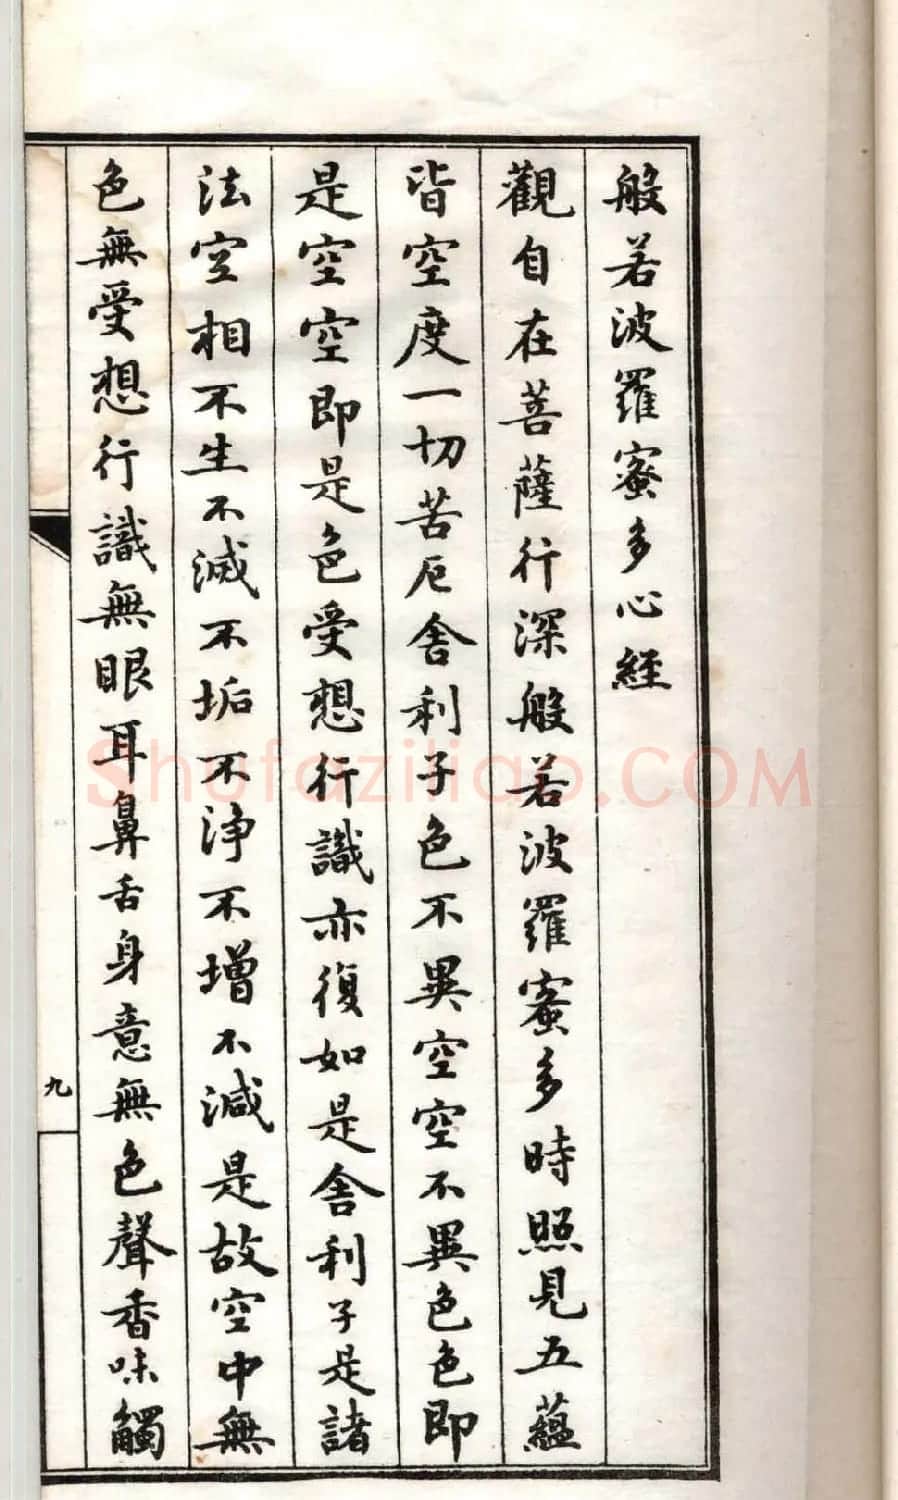 般若波羅蜜多心經
觀自在菩薩行深般若波羅蜜多時照見五蘊
皆空度一切苦厄舍利子色不異空空不異色色即
是空空即是色受想行識亦復如是舍利子是諸
法空相不生不滅不垢不淨不增不減是故空中無
色無受想行識無眼耳鼻舌身意無色聲香味觸
九
Shufaziliao.COM